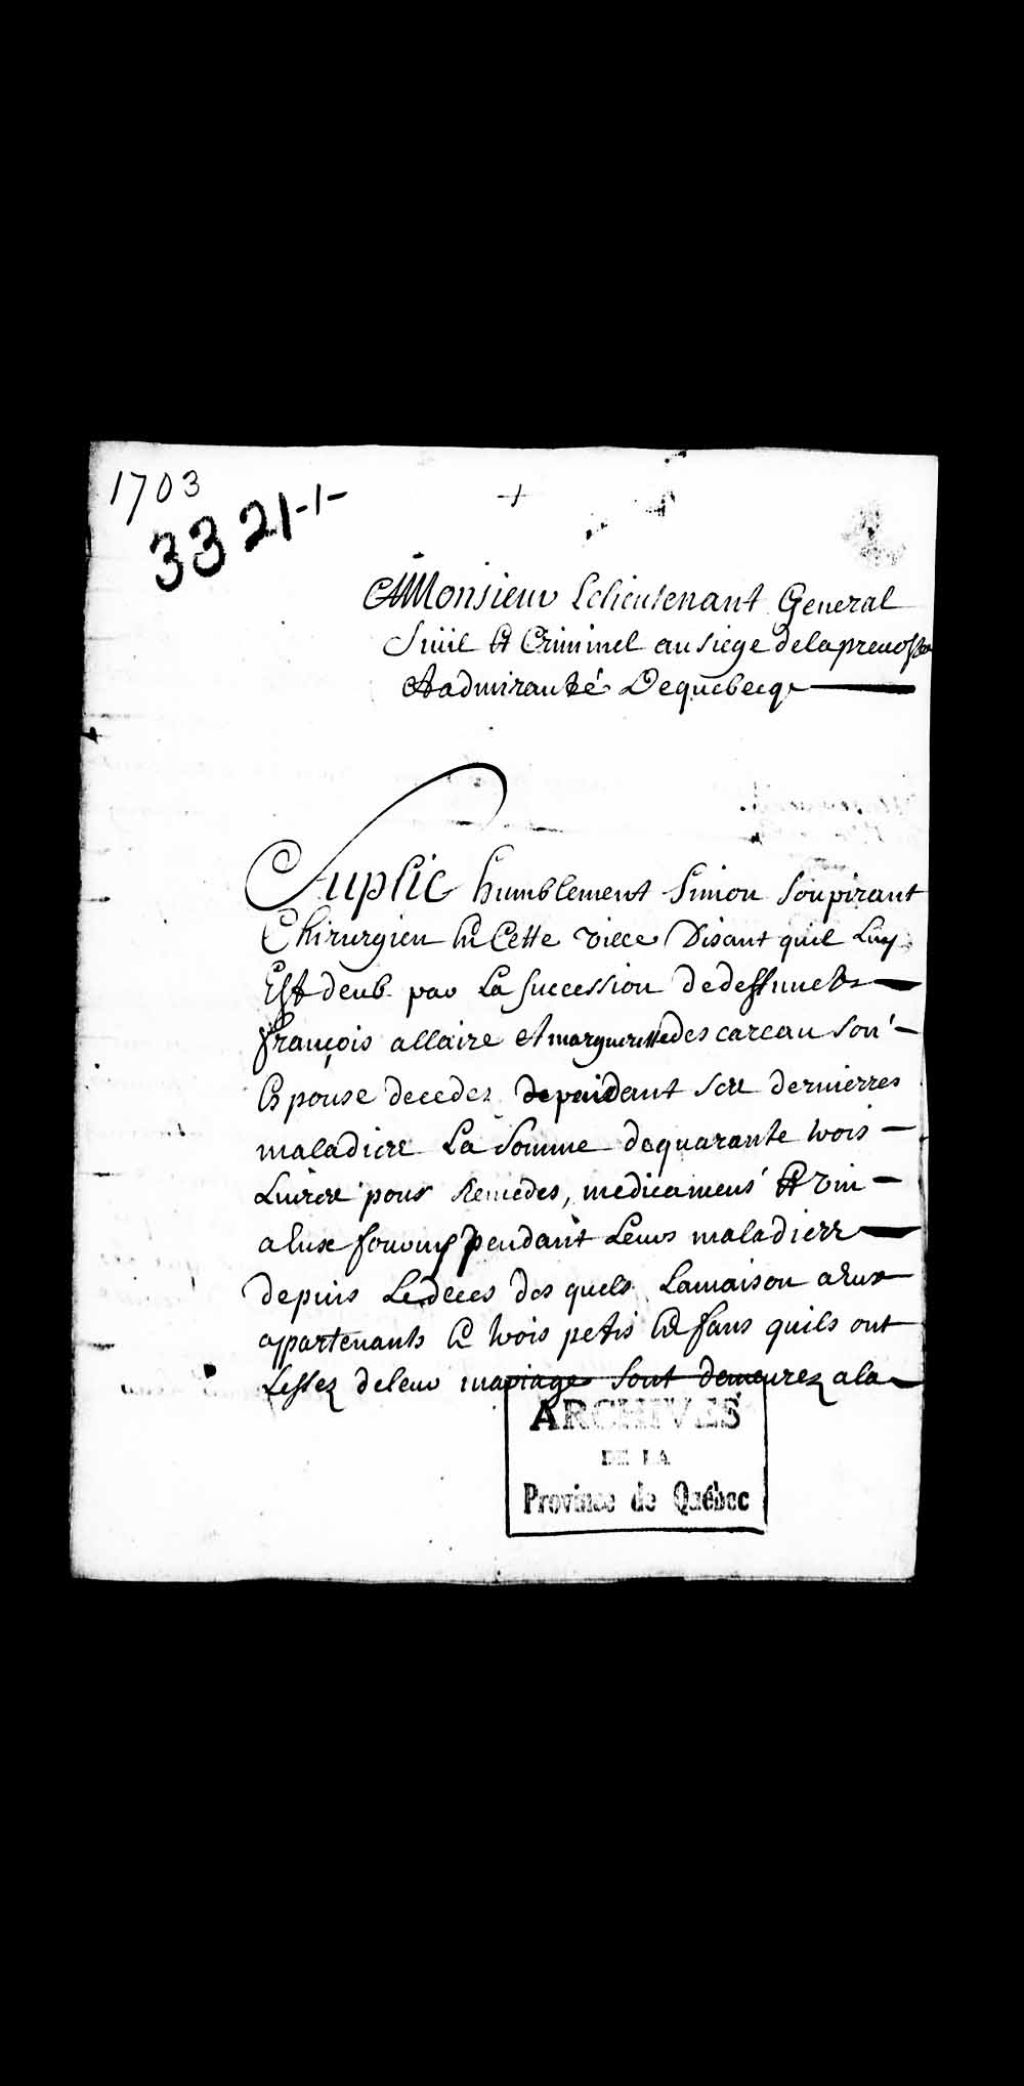 1703
3321-1-
A Monsieur Le lieutenant General
Siuil Et Criminel au siege de la preuosté
Et admirauté De quebecq
Suplie humblement Simon Soupirant
Chirurgien En Cette ville Disant quil Luy
Est deub par La Succession de deffunctz
françois allaire et margueritte des careau son
Espouse decedez pendant ses dernierres
maladies La Somme de quarante trois
Liures pour Remedes, medicamens Et vin
a Eux fournys pendant Leurs maladies
depuis Le deces des quels La maison a Eux
appartenants Et trois petis Enfans quils ont
Lessez de leur mariage sont demeurez a la
ARCHIVES
DE LA
Province de Québec